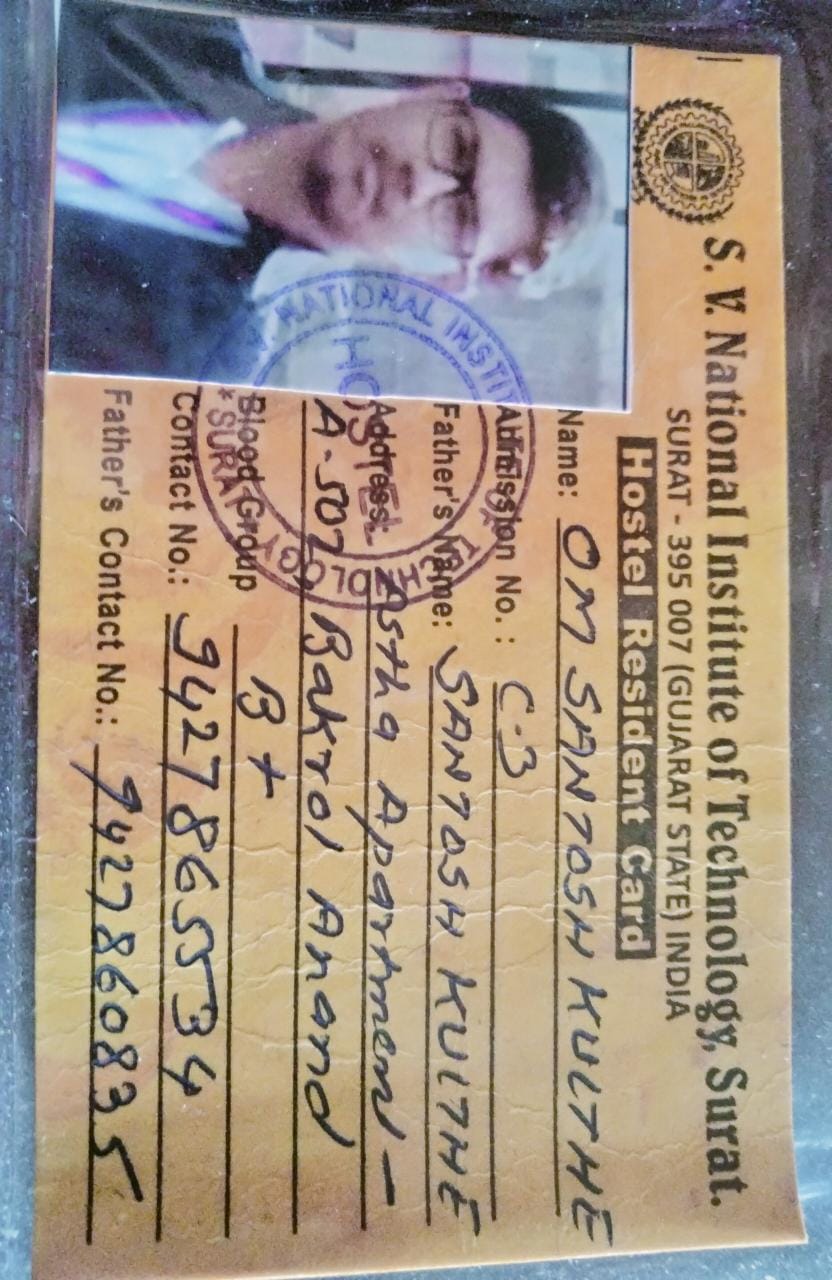 S. V. National Institute of Technology, Surat.
SURAT - 395 007 (GUJARAT STATE) INDIA
Hostel Resident Card
Name: OM SANTOSH KULTHE
Admission No. : C-3
Father's Name: SANTOSH KULTHE
Address: Astha Apartment -
A-502, Bakrol Anand
Blood Group B+
Contact No.: 9427865534
Father's Contact No.: 9427860835
V. NATIONAL INSTIT OF TECHNOLOGY
HOSTEL
* SURAT